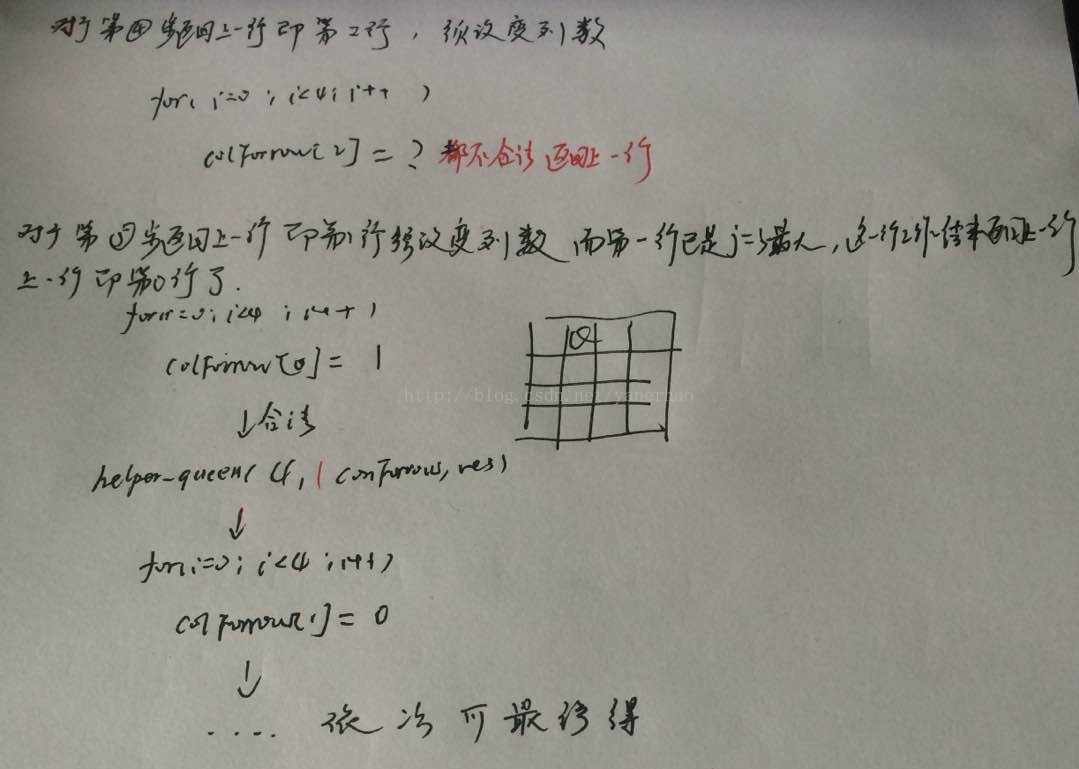 对于第④步返回上一行即第2行，须改变列数
for( i=0 ; i<4; i++ )
colForrow[2] = ? 都不合法返回上一行
对于第③步返回上一行即第1行须改变列数,而第一行已是i=3最大,这一行工作结束返回上一行
上一行即第0行了.
for(i=0; i<4 ; i++)
colForrow[0] = 1
Q
http://blog.csdn.net/yanerhao
↓合法
helper-queen( 4, 1 colForrows, res)
↓
for(i=0; i<4 ; i++)
colForrow[1] = 0
↓
.... 依次可最终得